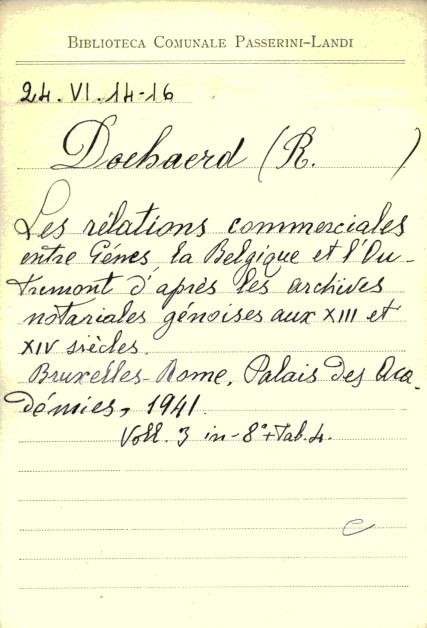 BIBLIOTECA COMUNALE PASSERINI-LANDI
24. VI. 14-16
Doehaerd (R. )
Les rélations commerciales
entre Génes, la Belgique et l'Ou-
tremont d'après les archives
notariales génoises aux XIII et
XIV siècles.
Bruxelles-Rome, Palais des Aca-
démies, 1941.
Voll. 3 in-8°+Tab. 4.
C